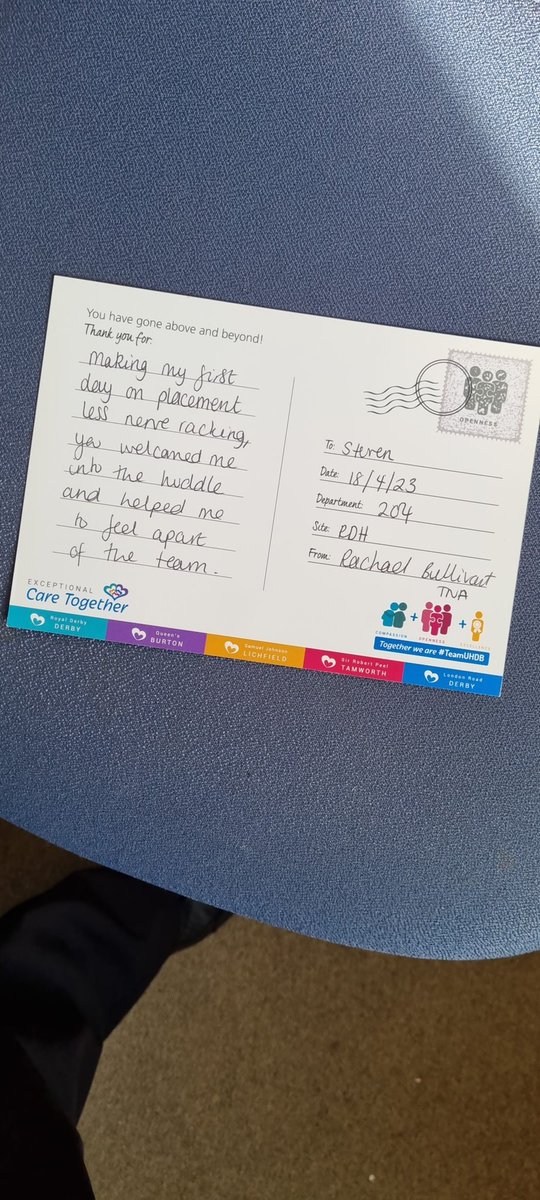 You have gone above and beyond!
Thank you for:
making my first
day on placement
less nerve racking,
you welcomed me
into the huddle
and helped me
to feel apart
of the team.
OPENNESS
To: Steven
Date: 18/4/23
Department: 204
Site: RDH
From: Rachael Bullivant
TNA
EXCEPTIONAL
Care Together
COMPASSION + OPENNESS + EXCELLENCE
Together we are #TeamUHDB
Royal Derby
DERBY
Queen's
BURTON
Samuel Johnson
LICHFIELD
Sir Robert Peel
TAMWORTH
London Road
DERBY